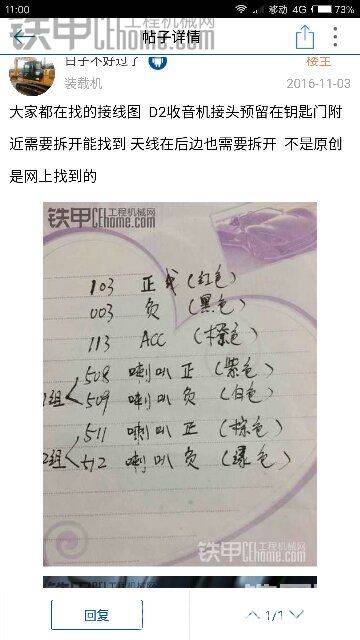 11:00
移动 4G 73%
铁甲 工程机械网
CEhome.com
帖子详情
日子不好过了
楼主
装载机
2016-11-03
大家都在找的接线图 D2收音机接头预留在钥匙门附
近需要拆开能找到 天线在后边也需要拆开 不是原创
是网上找到的
铁甲 工程机械网
CEhome.com
103 正 (红色)
003 负 (黑色)
113 ACC (棕色)
508 喇叭 正 (紫色)
1组 509 喇叭 负 (白色)
511 喇叭 正 (棕色)
2组 512 喇叭 负 (绿色)
铁甲 工程机械网
CEhome.com
回复
1/1